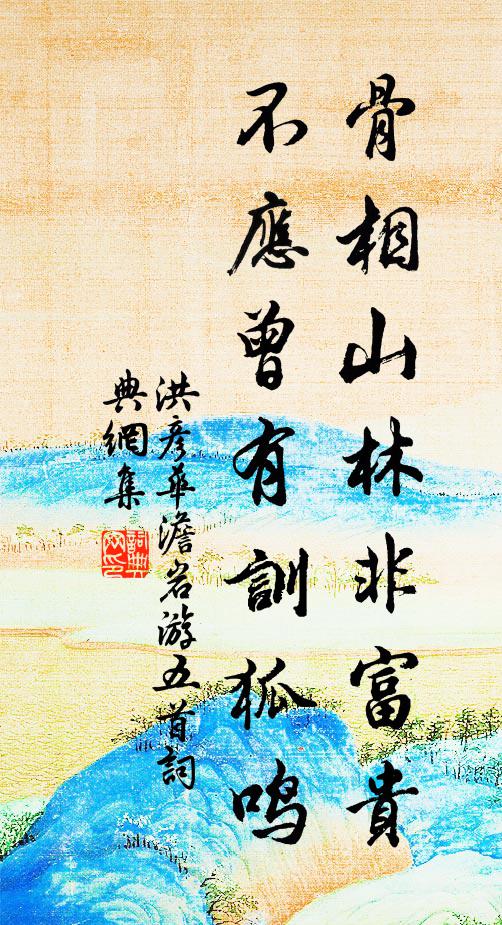 骨相山林非富貴
不應曾有訓狐鳴
洪彥華澹岩游五首詞
典網集
詞典網印